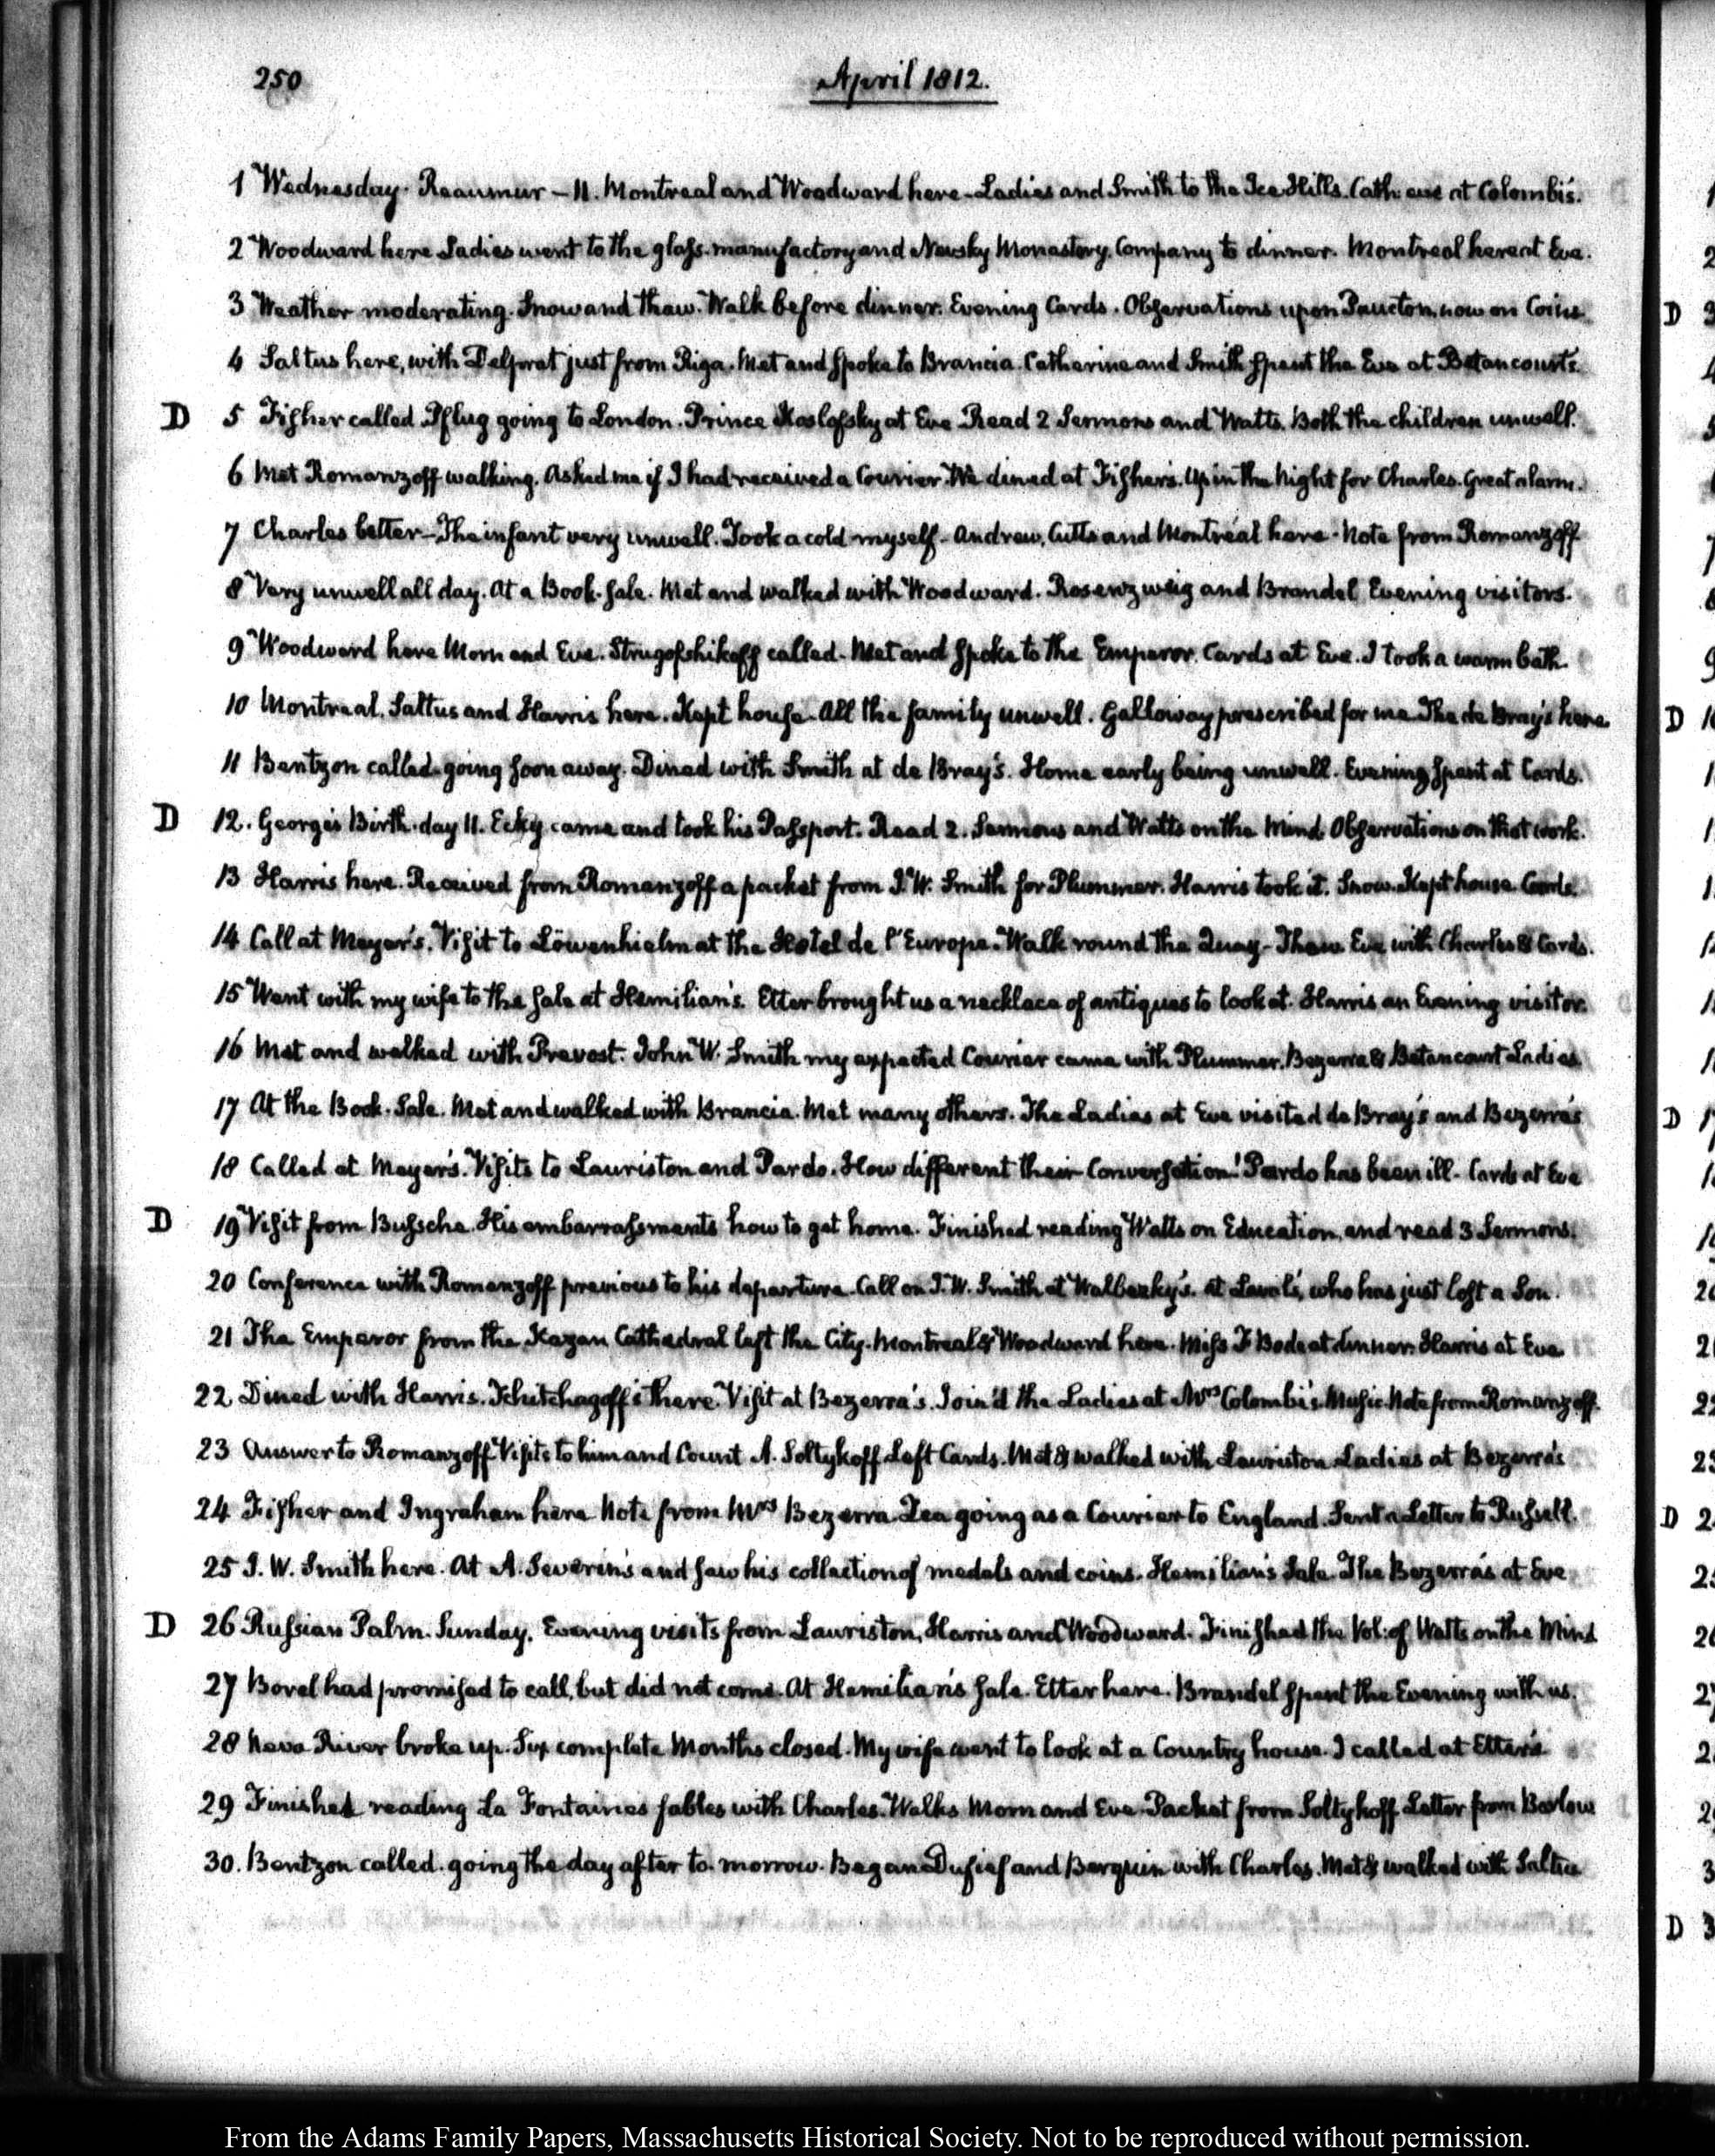 250
April 1812.
1 Wednesday. Reaumur – 11. Montreal and Woodward here – Ladies and Smith to the Ice Hills. Cath: eve at Colombi's.
2 Woodward here Ladies went to the glass-manufactory and Newsky Monastery. Company to dinner. Montreal here at Eve.
3 Weather moderating. Snow and thaw. Walk before dinner. Evening Cards. Observations upon Paucton, now on Coins
4 Saltus here, with Delprat just from Riga. Met and spoke to Brancia. Catherine and Smith spent the Eve at Betancourt's.
D 5 Fisher called Pflug going to London. Prince Koslofsky at Eve Read 2 Sermons and Watts. Both the children unwell.
6 Met Romanzoff walking. Asked me if I had received a Courier. We dined at Fisher's. Up in the Night for Charles. Great alarm.
7 Charles better – The infant very unwell. Took a cold myself – Andrew, Cutts and Montréal here – Note from Romanzoff
8 Very unwell all day. At a Book-sale. Met and walked with Woodward. Rosenzweig and Brandel Evening visitors.
9 Woodward here Morn and Eve. Strugofshikoff called – Met and spoke to the Emperor. Cards at Eve. I took a warm bath.
10 Montreal, Saltus and Harris here. Kept house. All the family unwell. Galloway prescribed for me. The de Bray's here
11 Bentzon called going soon away. Dined with Smith at de Bray's. Home early being unwell. Evening spent at Cards.
D 12. George's Birth-day 11. Ecky came and took his Passport. Read 2. Sermons and Watts on the Mind. Observations on that work.
13 Harris here. Received from Romanzoff a packet from J. W. Smith for Plummer. Harris took it. Snow. Kept house. Cards.
14 Call at Meyer's. Visit to Löwenhielm at the Hotel de l'Europe. Walk round the Quay – Thaw Eve with Charles & Cards.
15 Went with my wife to the sale at Hemilian's. Etter brought us a necklace of antiques to look at. Harris an Evening visitor.
16 Met and walked with Prevost. John W. Smith my expected Courier came with Plummer. Bezerra & Betancourt Ladies
17 At the Book-Sale. Met and walked with Brancia. Met many others. The Ladies at Eve visited de Bray's and Bezerra's
18 Called at Meyer's. Visits to Lauriston and Pardo. How different their Conversation! Pardo has been ill – Cards at Eve
D 19 Visit from Bussche. His embarrassments how to get home. Finished reading Watts on Education, and read 3 Sermons.
20 Conference with Romanzoff previous to his departure. Call on J. W. Smith at at Laval's, who has just lost a Son.
21 The Emperor from the Kazan Cathedral left the City. Montreal & Woodward here. Miss F Bode at dinner. Harris at Eve
22 Dined with Harris. Tchitchagoff there. Visit at Bezerra's. Join'd the Ladies at Mrs Colombi's. Music. Note from Romanzoff.
23 Answer to Romanzoff Visits to him and Count A. Soltykoff Left Cards. Met & walked with Lauriston Ladies at Bezerra's
24 Fisher and Ingraham here Note from Mrs Bezerra. Lea going as a Courier to England. Sent a Letter to Russell.
25 J. W. Smith here. At A. Severin's and saw his collection of medals and coins. Hemilian's Sale. The Bezerra's at Eve
D 26 Russian Palm-Sunday. Evening visits from Lauriston, Harris and Woodward. Finished the Vol: of Watts on the Mind
27 Borel had promised to call, but did not come. At Hemilian's Sale. Etter here. Brandel spent the Evening with us.
28 Neva River broke up. Six complete Months closed. My wife went to look at a Country house. I called at Etter's
29 Finished reading La Fontaines fables with Charles. Walks Morn and Eve. Packet from Soltykoff Letter from Barlow
30. Bentzon called. going the day after to-morrow. Began Dufief and Berquin with Charles. Met & walked with Saltus
From the Adams Family Papers, Massachusetts Historical Society. Not to be reproduced without permission.